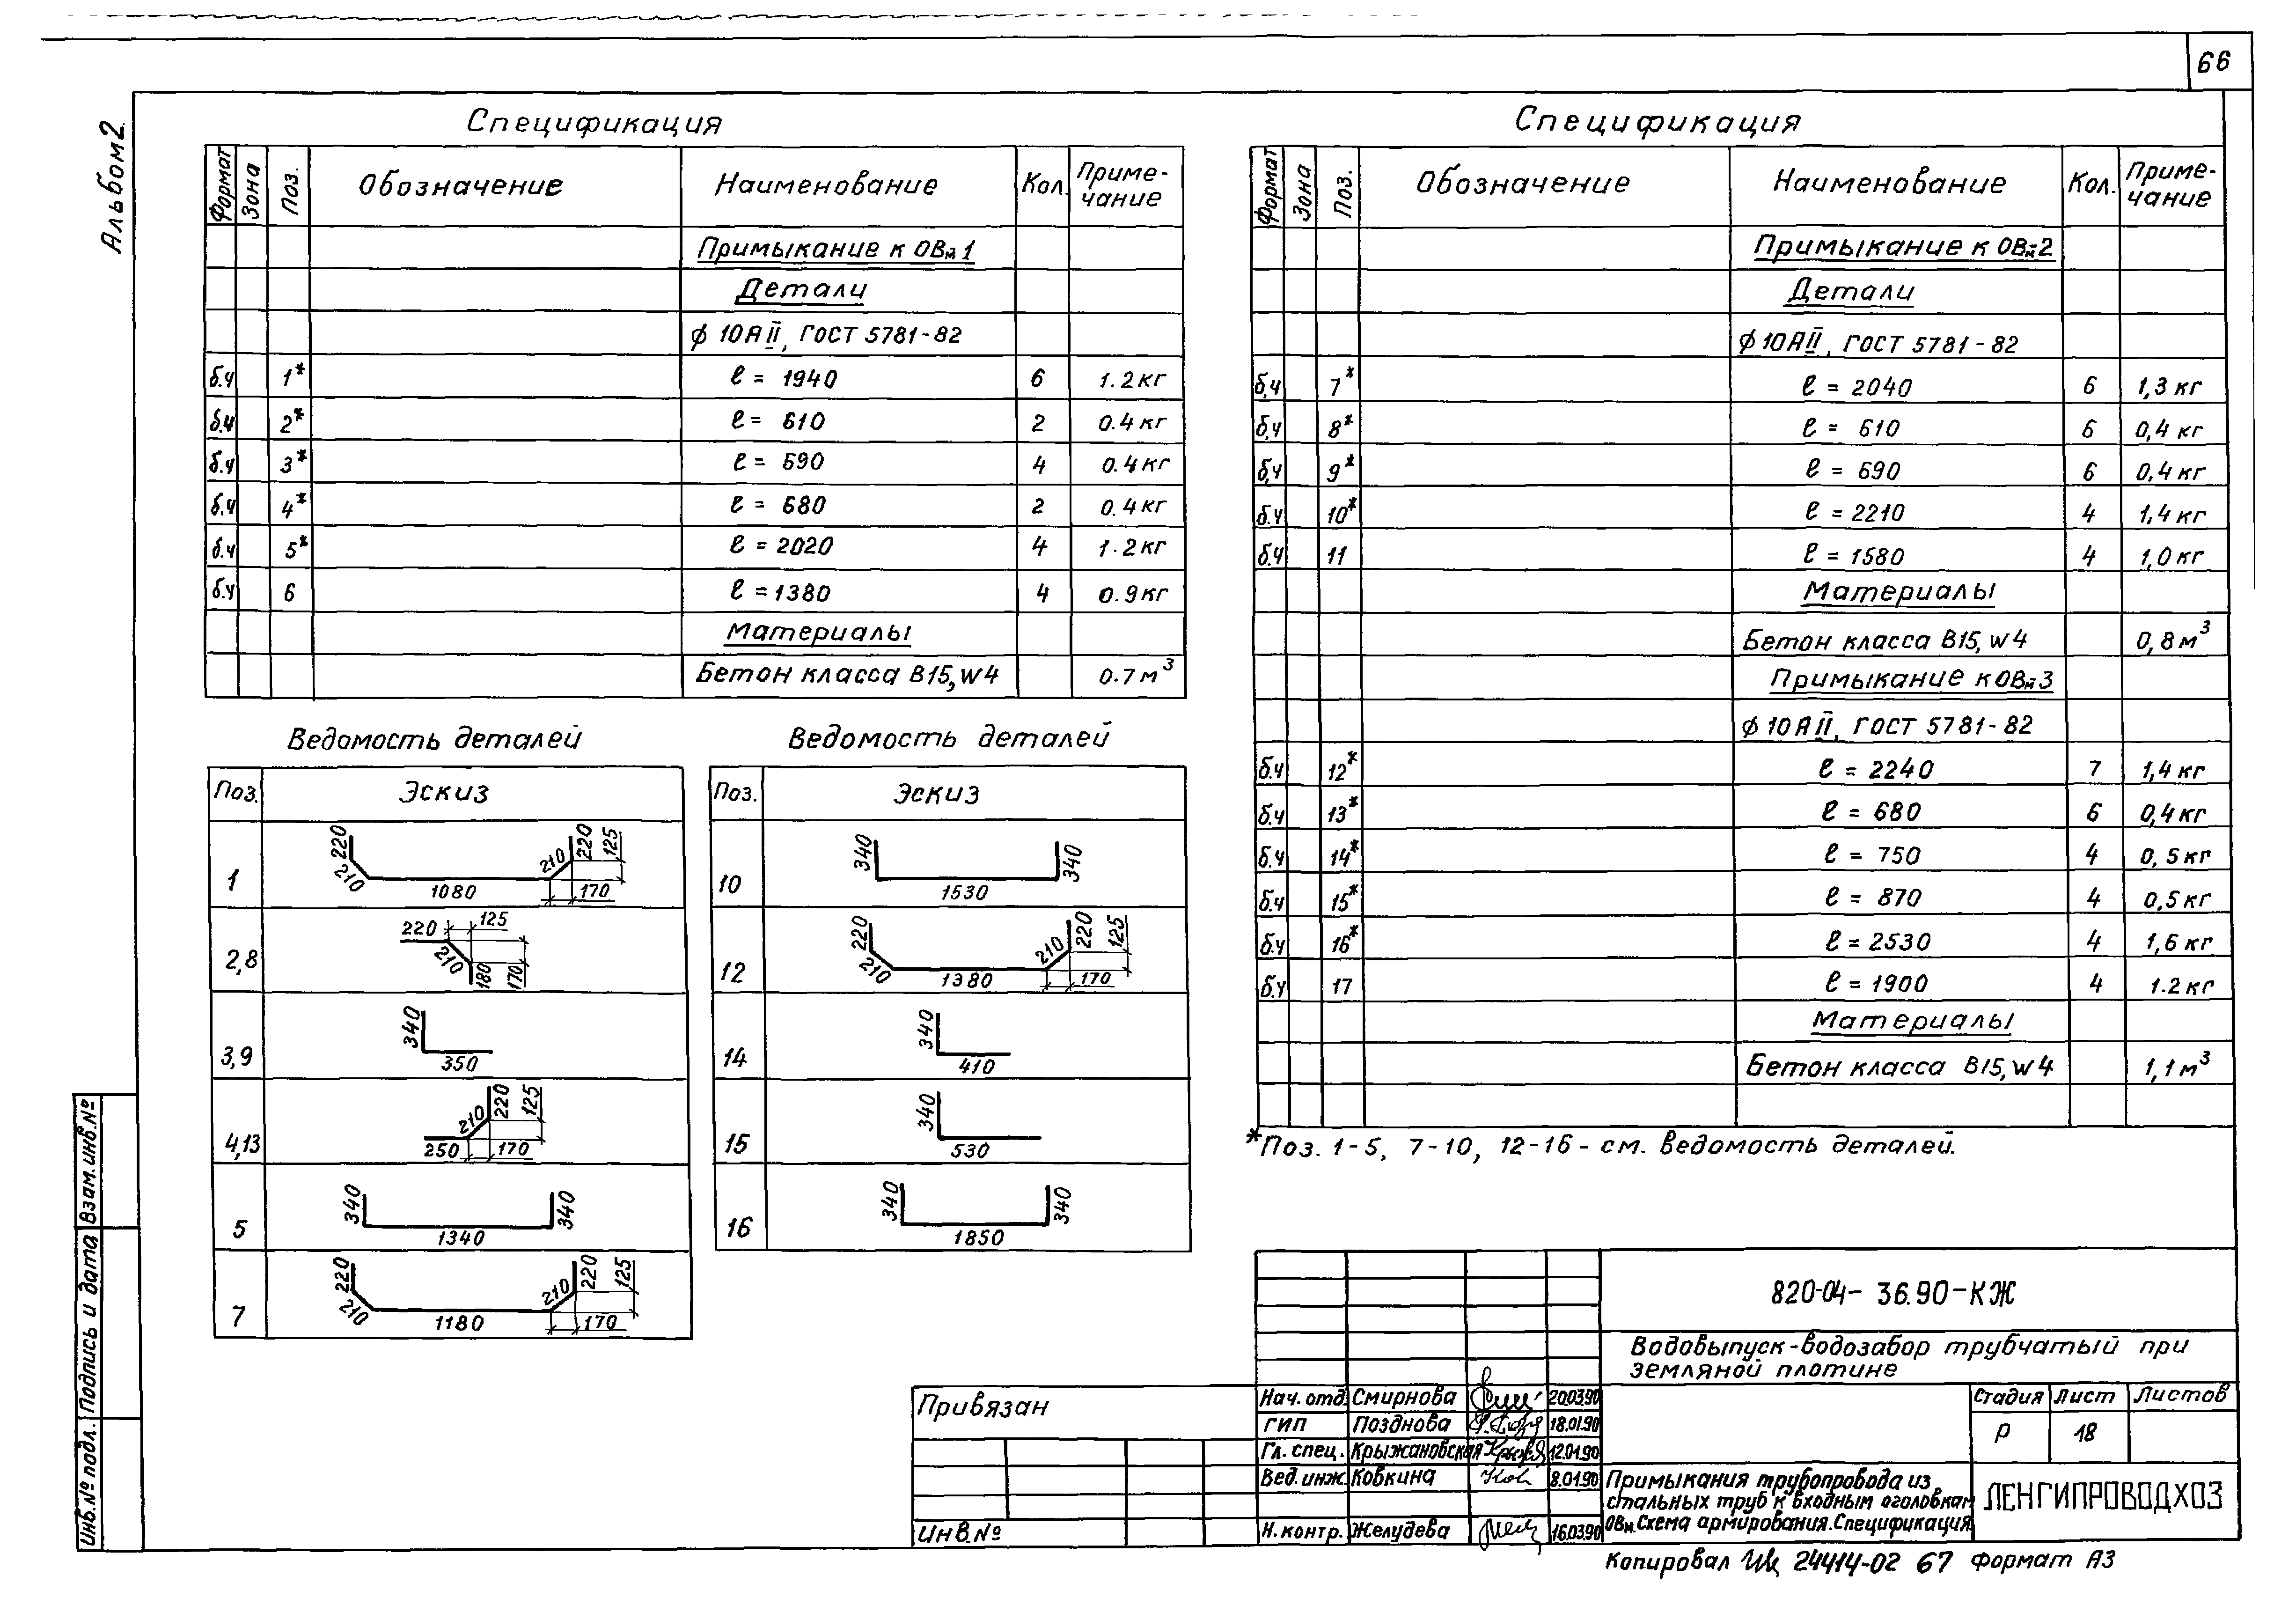 66
Альбом 2
Спецификация
Формат Зона Поз. Обозначение Наименование Кол. Приме-чание
Примыкание к ОВм1
Детали
ϕ 10АII, ГОСТ 5781-82
б.ч 1* ℓ = 1940 6 1.2 кг
б.ч 2* ℓ = 610 2 0.4 кг
б.ч 3* ℓ = 690 4 0.4 кг
б.ч 4* ℓ = 680 2 0.4 кг
б.ч 5* ℓ = 2020 4 1.2 кг
б.ч 6 ℓ = 1380 4 0.9 кг
Материалы
Бетон класса В15, W4 0.7 м³
Ведомость деталей
Поз. Эскиз
1 220 210 1080 210 220 125 170
2,8 220 125 210 180 170
3,9 340 350
4,13 250 210 220 125 170
5 340 1340 340
7 220 210 1180 210 220 125 170
Ведомость деталей
Поз. Эскиз
10 340 1530 340
12 220 210 1380 210 220 125 170
14 340 410
15 340 530
16 340 1850 340
Спецификация
Формат Зона Поз. Обозначение Наименование Кол. Приме-чание
Примыкание к ОВм2
Детали
ϕ 10АII, ГОСТ 5781-82
б.ч 7* ℓ = 2040 6 1,3 кг
б.ч 8* ℓ = 610 6 0,4 кг
б.ч 9* ℓ = 690 6 0,4 кг
б.ч 10* ℓ = 2210 4 1,4 кг
б.ч 11 ℓ = 1580 4 1,0 кг
Материалы
Бетон класса В15, W4 0,8 м³
Примыкание к ОВм3
ϕ 10АII, ГОСТ 5781-82
б.ч 12* ℓ = 2240 7 1,4 кг
б.ч 13* ℓ = 680 6 0,4 кг
б.ч 14* ℓ = 750 4 0,5 кг
б.ч 15* ℓ = 870 4 0,5 кг
б.ч 16* ℓ = 2530 4 1,6 кг
б.ч 17 ℓ = 1900 4 1.2 кг
Материалы
Бетон класса В15, W4 1,1 м³
*Поз. 1-5, 7-10, 12-16 - см. ведомость деталей.
Инв.№ подл. Подпись и дата Взам.инв.№
Привязан
Инв.№
Нач. отд. Смирнова 20.03.90
ГИП Позднова 18.01.90
Гл. спец. Крыжановская 12.01.90
Вед. инж. Ковкина 8.01.90
Н. контр. Желудева 16.03.90
820-04-36.90-КЖ
Водовыпуск-водозабор трубчатый при
земляной плотине
Стадия Лист Листов
Р 18
Примыкания трубопровода из
стальных труб к входным оголовкам
ОВм. Схема армирования. Спецификация
ЛЕНГИПРОВОДХОЗ
Копировал 24414-02 67 Формат А3